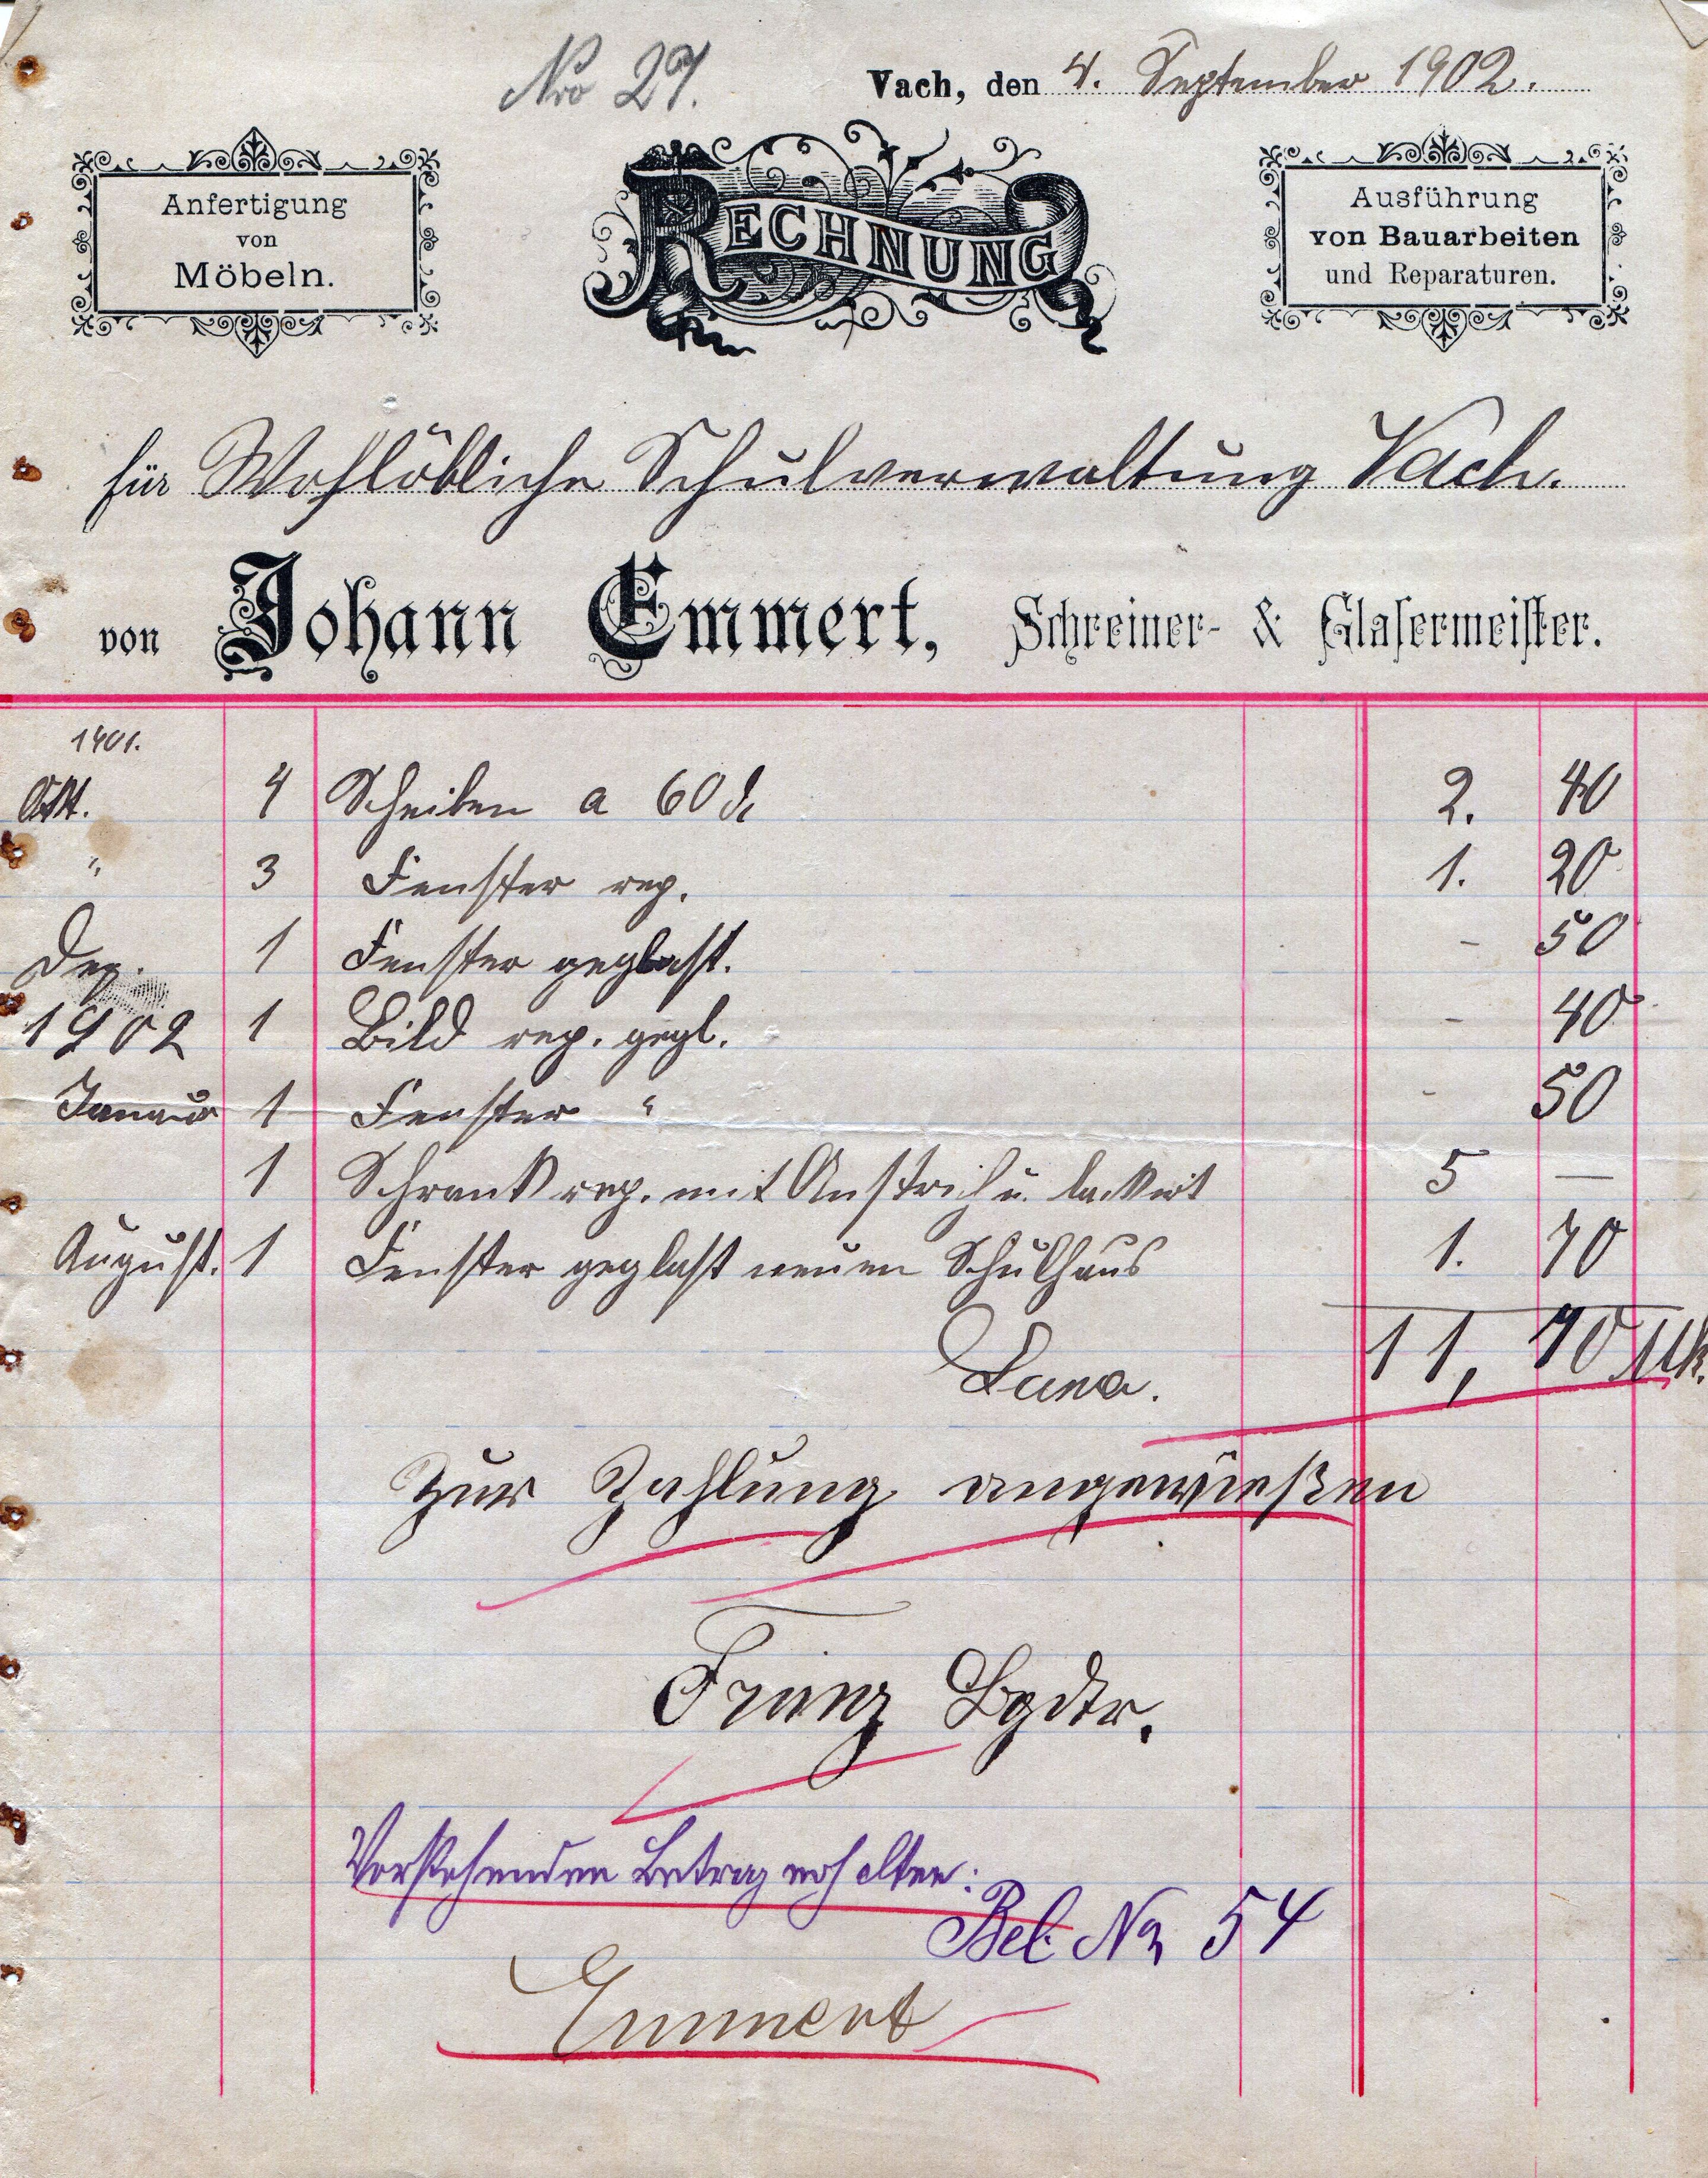 Nro 27.
Vach, den 4. September 1902.
Anfertigung
von
Möbeln.
RECHNUNG
Ausführung
von Bauarbeiten
und Reparaturen.
für Wohllöbliche Schulverwaltung Vach.
von Johann Emmert, Schreiner- & Glasermeister.
1901.
Okt. 4 Scheiben a 60 ₰ 2. 40
" 3 Fenster rep. 1. 20
Dez. 1 Fenster geglast. - 50
1902 1 Bild rep. gegl. - 40
Januar 1 Fenster " - 50
1 Schrank rep. mit Anstrich u. lackirt 5 —
August. 1 Fenster geglast neuen Schulhaus 1. 70
Suma. 11, 70 Mk.
Zur Zahlung angewießen
Franz Bgdtr.
Vorstehenden Betrag erhalten:
Bel. No 54
Emmert